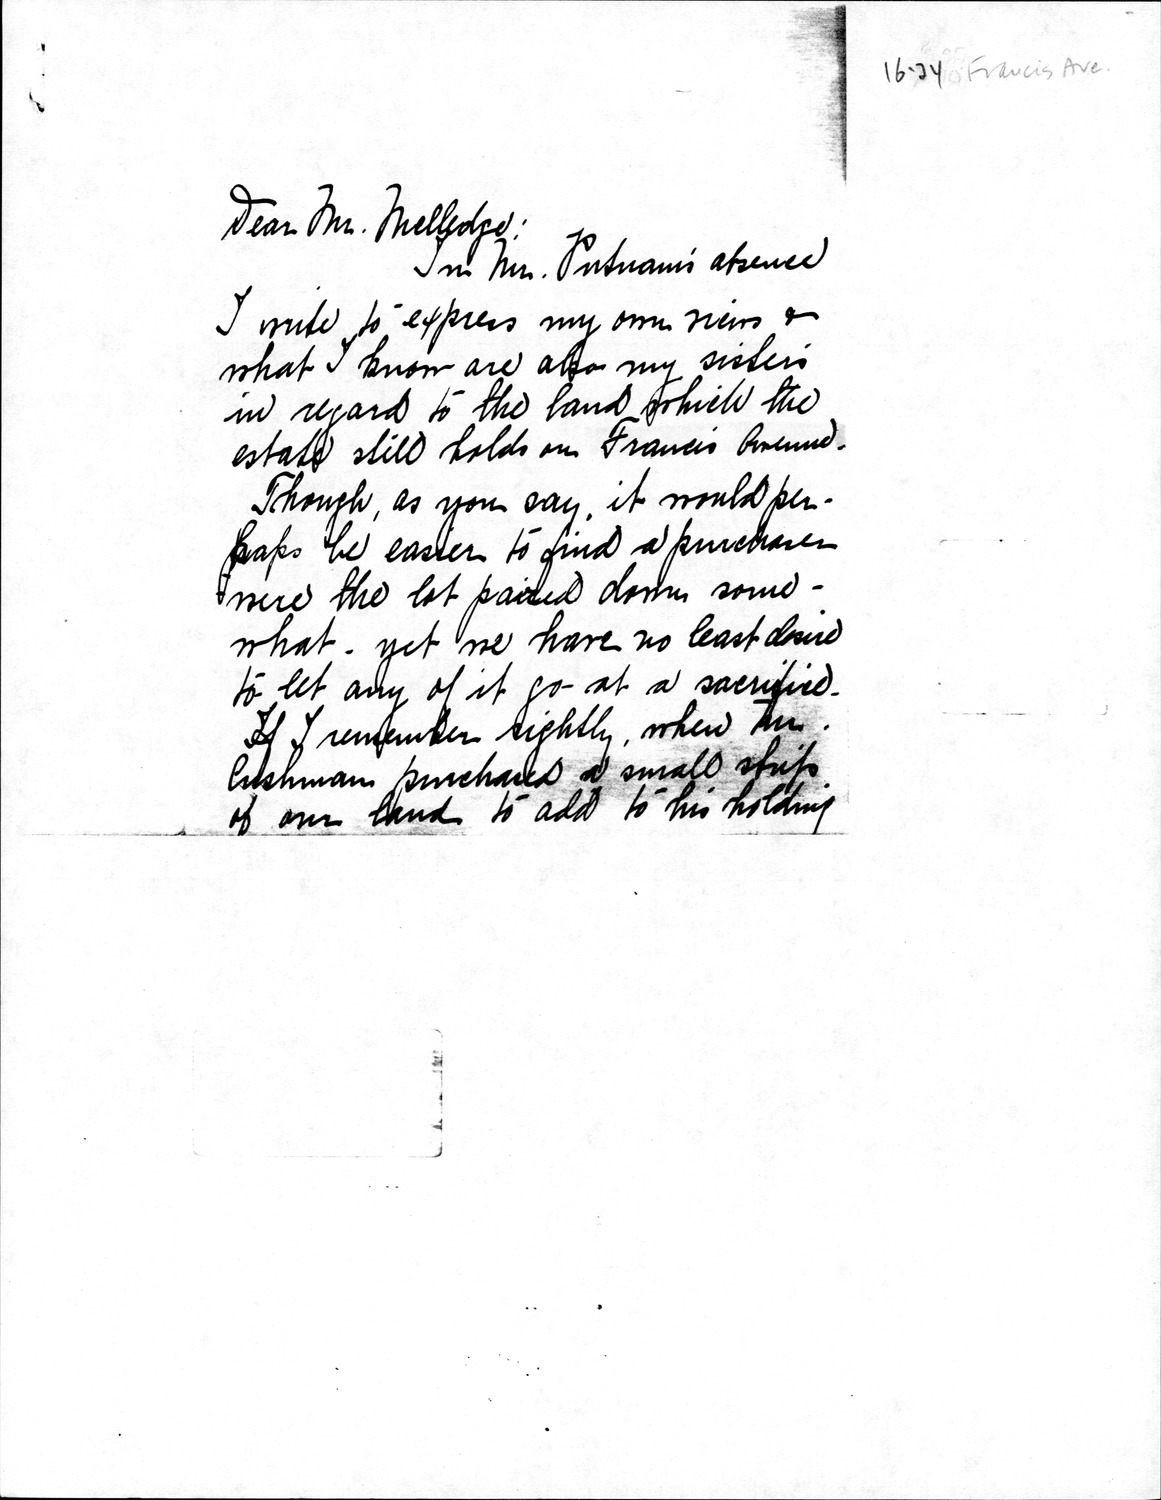 16-24 Francis Ave.
Dear Mr. Melledge:
In Mr. Putnam's absence
I write to express my own views &
what I know are also my sister's
in regard to the land which the
estate still holds on Francis Avenue.
Though, as you say, it would per-
haps be easier to find a purchaser
were the lot paired down some-
what - yet we have no least desire
to let any of it go at a sacrifice.
If I remember rightly, when Mr.
Cushman purchased a small strip
of our land to add to his holding